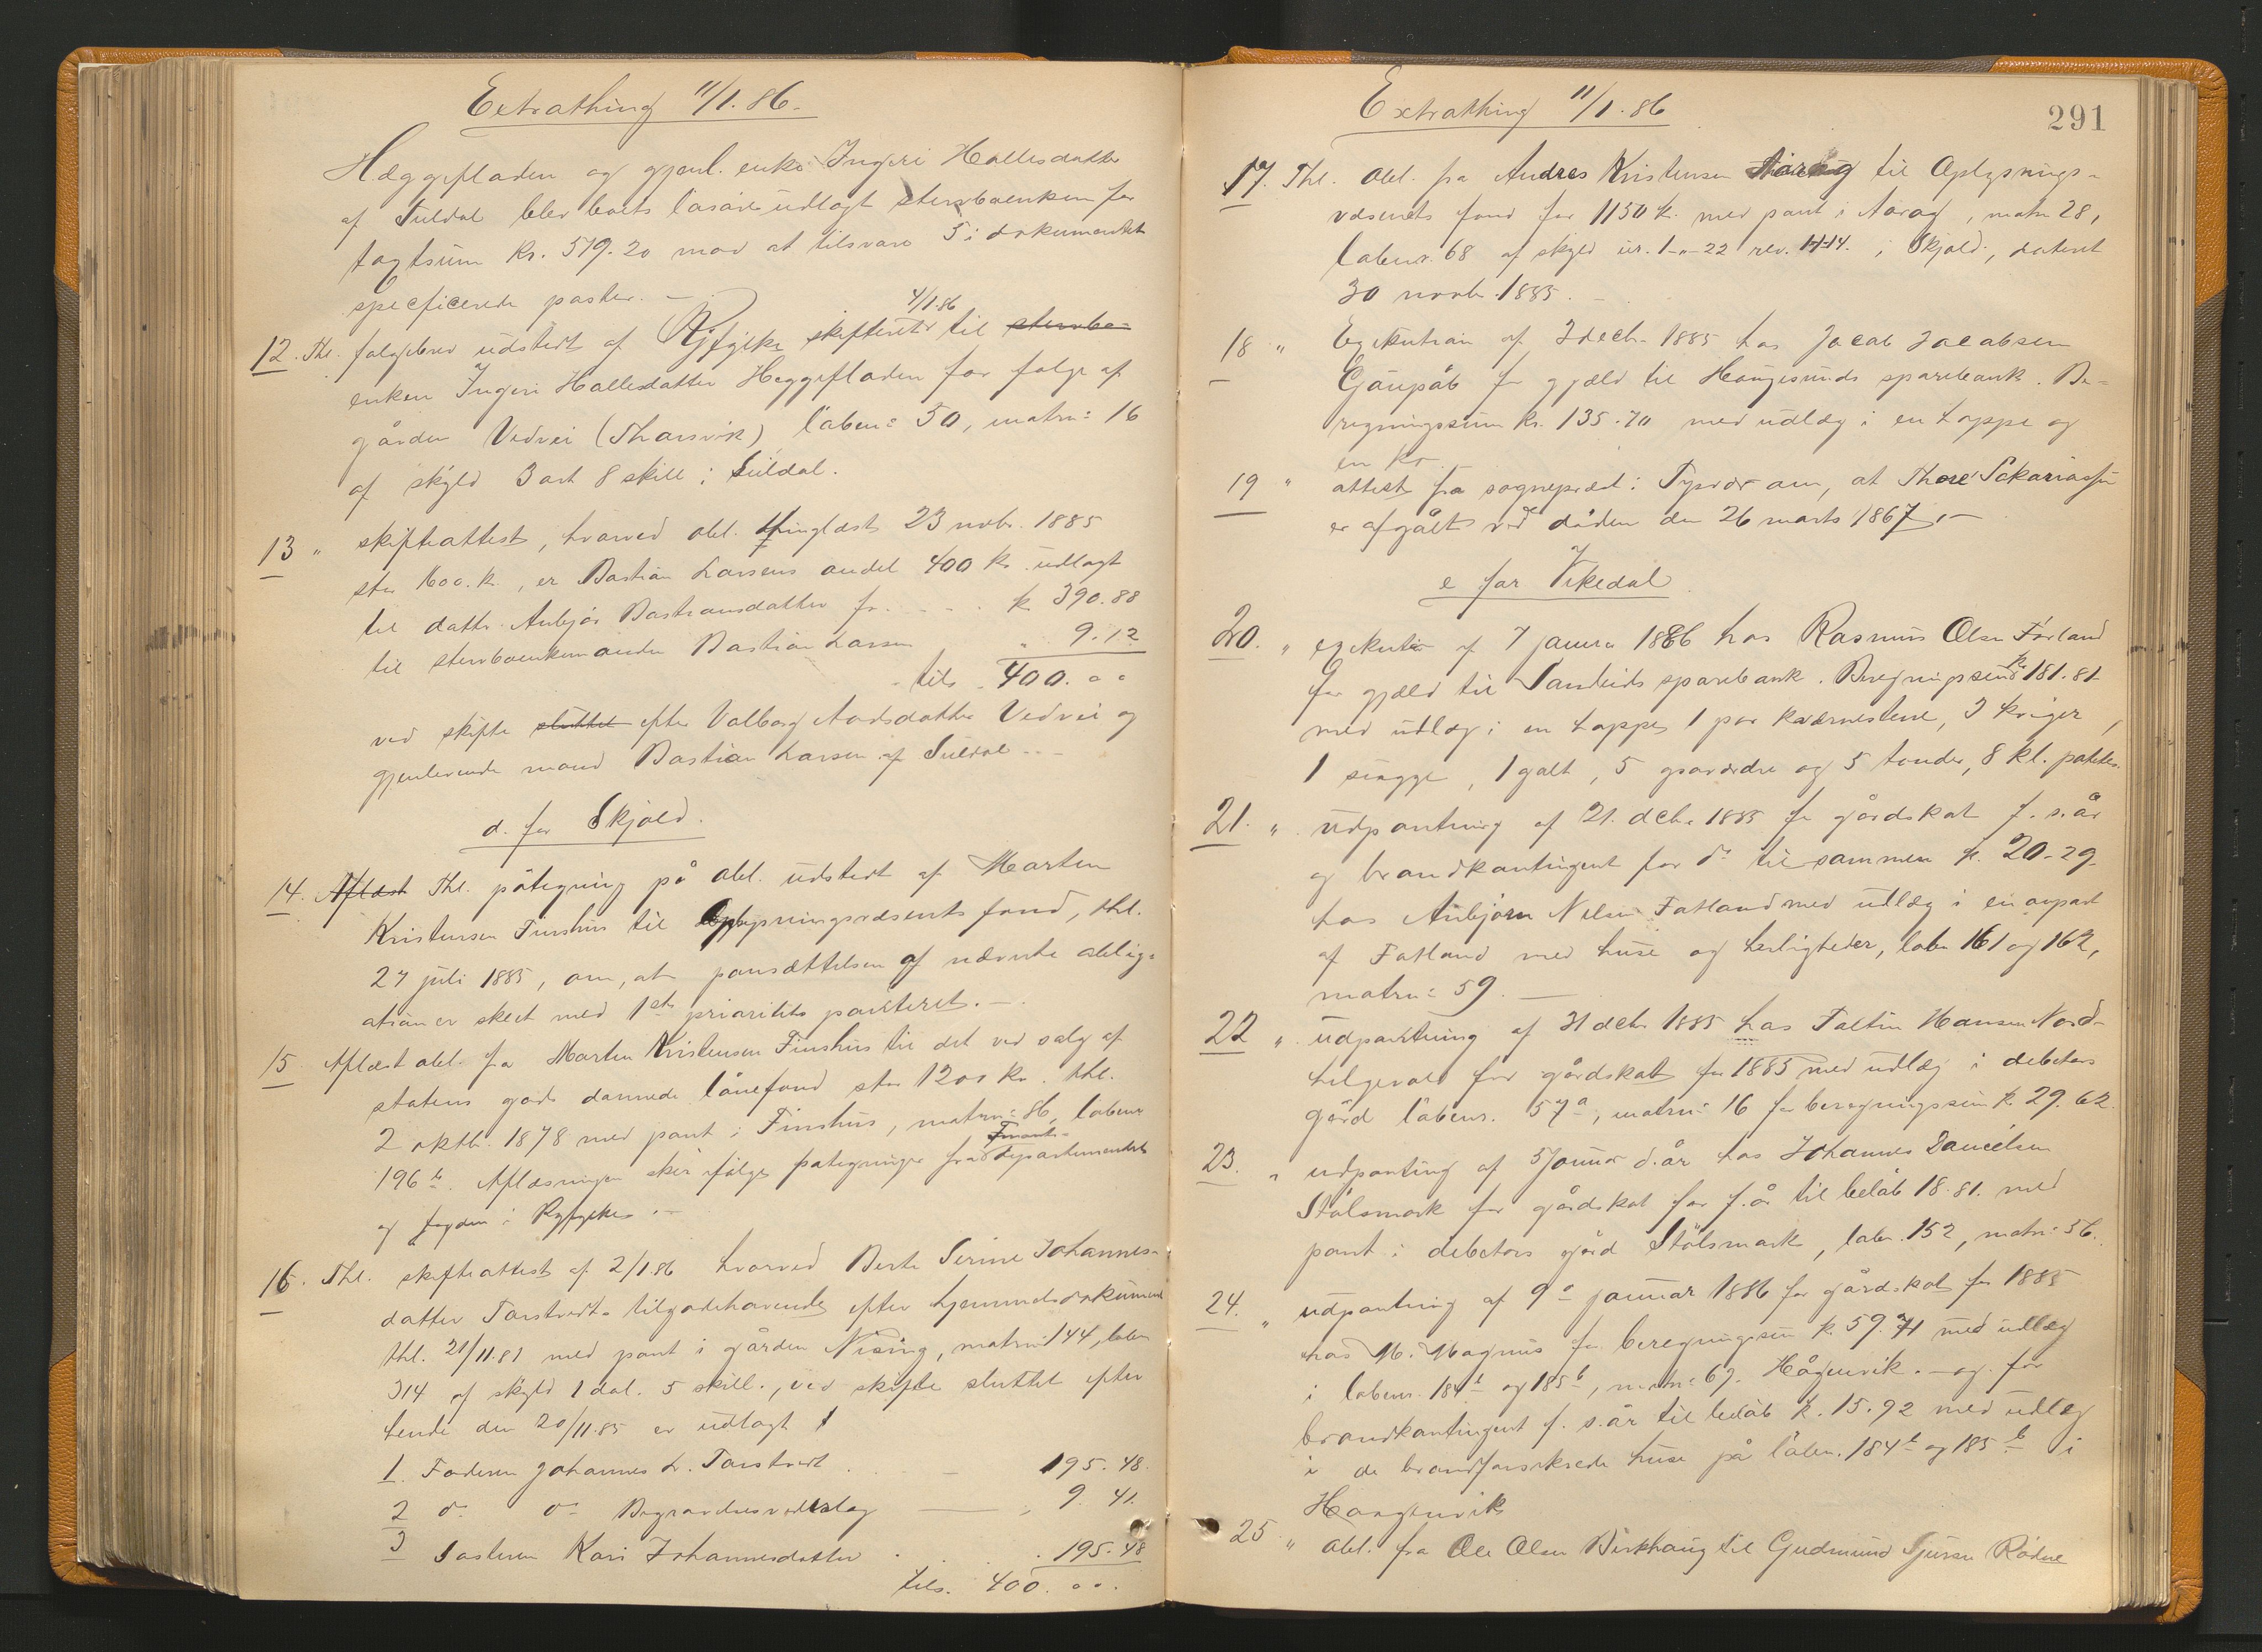 Extrathing 11/1.86.
Hæggefladen og gjenl. enke Ingeri Hallesdatter
af Suldal blev boets løsøre udlagt stervboenken for
taxtsum kr. 579.20 mod at tilsvare 5 i dokumentet
specficerede poster. –
4/1.86
12. Thl. følgebrev udstedt af Ryfylke skifteret til stervbo=
enken Ingeri Hallesdatter Heggefladen for følge af
gården Vedvei (Tharsvik) løben= 50, matrn= 16
af skyld 3 ort 8 skill i Suldal.
13 " skifteattest, hvorved obl. thinglæst 23 novbr. 1885
stor 1600. k., er Bastian Larsens andel 400 kr. udlagt
til dattr. Anbjør Bastiansdatter for . . . . k. 390.88
til stervboenkemanden Bastian Larsen " 9.12
tils. 400. " "
ved skifte sluttet efter Valborg Aadsdatter Vedvei og
gjenlevende mand Bastian Larsen af Suldal. – –
d. for Skjold.
14. Aflæst Thl. påtegning på obl. udstedt af Morten
Kristensen Finshus til Oplysningsvæsents fond, thl.
27 juli 1885, om, at pansættelsen af nævnte oblig=
ation er skeet med 1ste prioritets panteret. –
15 Aflæst obl. fra Morten Kristensen Finshus til det ved salg af
statens gods dannede lånefond stor 1200 kr. thl.
2 oktb. 1878 med pant i Finshus, matrn= 86, løbenr
196 b. Aflæsningen sker ifølge påtegninger fra Finants=departementet
og fogden i Ryfylke. –
16. Thl. skifteattest af 2/1.86 hvorved Berte Serine Johannes-
datter Torstvedts tilgodehavende efter hjemmelsdokument
thl. 21/11.81 med pant i gården Nising, matrn= 144, løben
314 af skyld 1 dal. 5 skill., ved skifte sluttet efter
hende den 20/11.85 er udlagt t
1. Faderen Johannes L. Torstvedt . – 195.48.
2 do do Begravelses " 9.41.
3 Søsteren Kari Johannesdatter . . . . 195.48
tils. 400. " ".
Extrathing 11/1.86
291
17. Thl. obl. fra Andres Kristensen Aarøg til Oplysnings-
væsenets fond for 1150 k. med pant i Aarøg, matrn 28,
løbenr. 68 af skyld ur. 1-"-22 rev. 14-14. i Skjold, dateret
30 novb. 1885. –
18 " Exekution af 3 decb. 1885 hos Jacob Jacobsen
Gaupås for gjæld til Haugesunds sparebank. Be=
regningssum kr. 135.70 med udlæg i en hoppe og
en ko.
19 " attest fra sognepræst i Tysvær om, at Thore Sakariassen
er afgået ved døden den 26 marts 1867. –
e for Vikedal
20. " exekution af 7 januar 1886 hos Rasmus Olsen Førland
for gjæld til Sandeids sparebank. Beregningssum kr. 181.81
med udlæg i en hoppe, 1 par kværnestene, 3 kviger,
1 sugge, 1 galt, 5 gravædre og 5 tønder, 8 kl. poteter.
21. " udpantning af 21. decb. 1885 for gårdskat f. s. år
og brandkontingent for do tilsammen k. 20-29.
hos Anbjørn Nelsen Fatland med udlæg i en avpart
af Fatland med huse og herligheder, løben 161 og 162,
matrn= 59. –
22 " udpantning af 31 decb. 1885 hos Faltin Hansen Nord-
helgevold for gårdskat for 1885 med udlæg i debetors
gård løbenr. 57a, matrn= 16 for beregningssum k. 29.62
23. " udpanting af 5 januar d. år hos Johannes Danielsen
Stølsmark for gårdskat for f. år til beløb 18.81. med
pant i debetors gård Stølsmark, løben. 152, matrn= 56.
24. " udpantning af 9de januar 1886 for gårdskat for 1885
hos M. Magnus for beregningssum k. 59.71 med udlæg
i løbenr. 184b og 185b, matrn= 67. Hågenvik. – og for
brandkontingent f. s. år til beløb k. 15.92 med udlæg
i de brandforsikrede huse på løben. 184b og 185b i
Haagenvik
25 " obl. fra Ole Olsen Birkhaug til Gudmund Sjursen Rødne